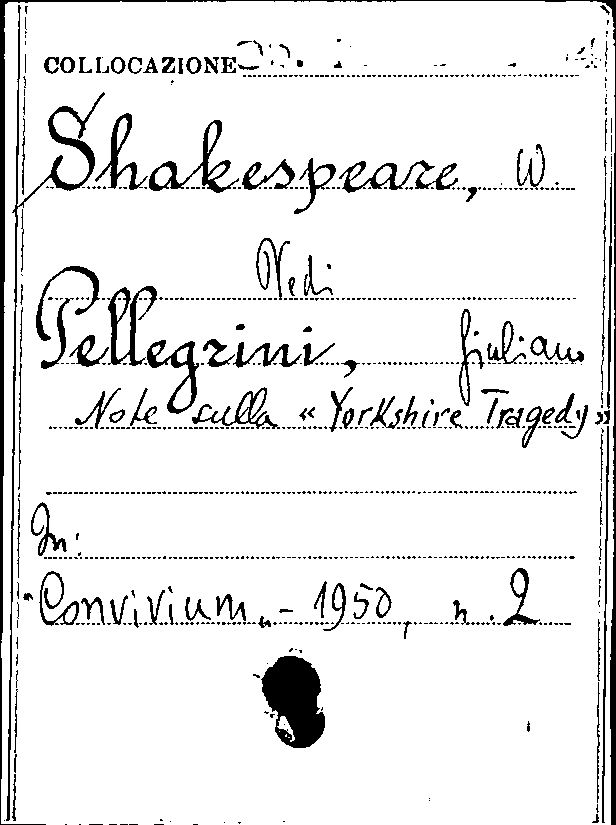 COLLOCAZIONE
Shakespeare, W.
Vedi
Pellegrini, Giuliano
Note sulla « Yorkshire Tragedy »
In:
"Convivium" - 1950, n. 2